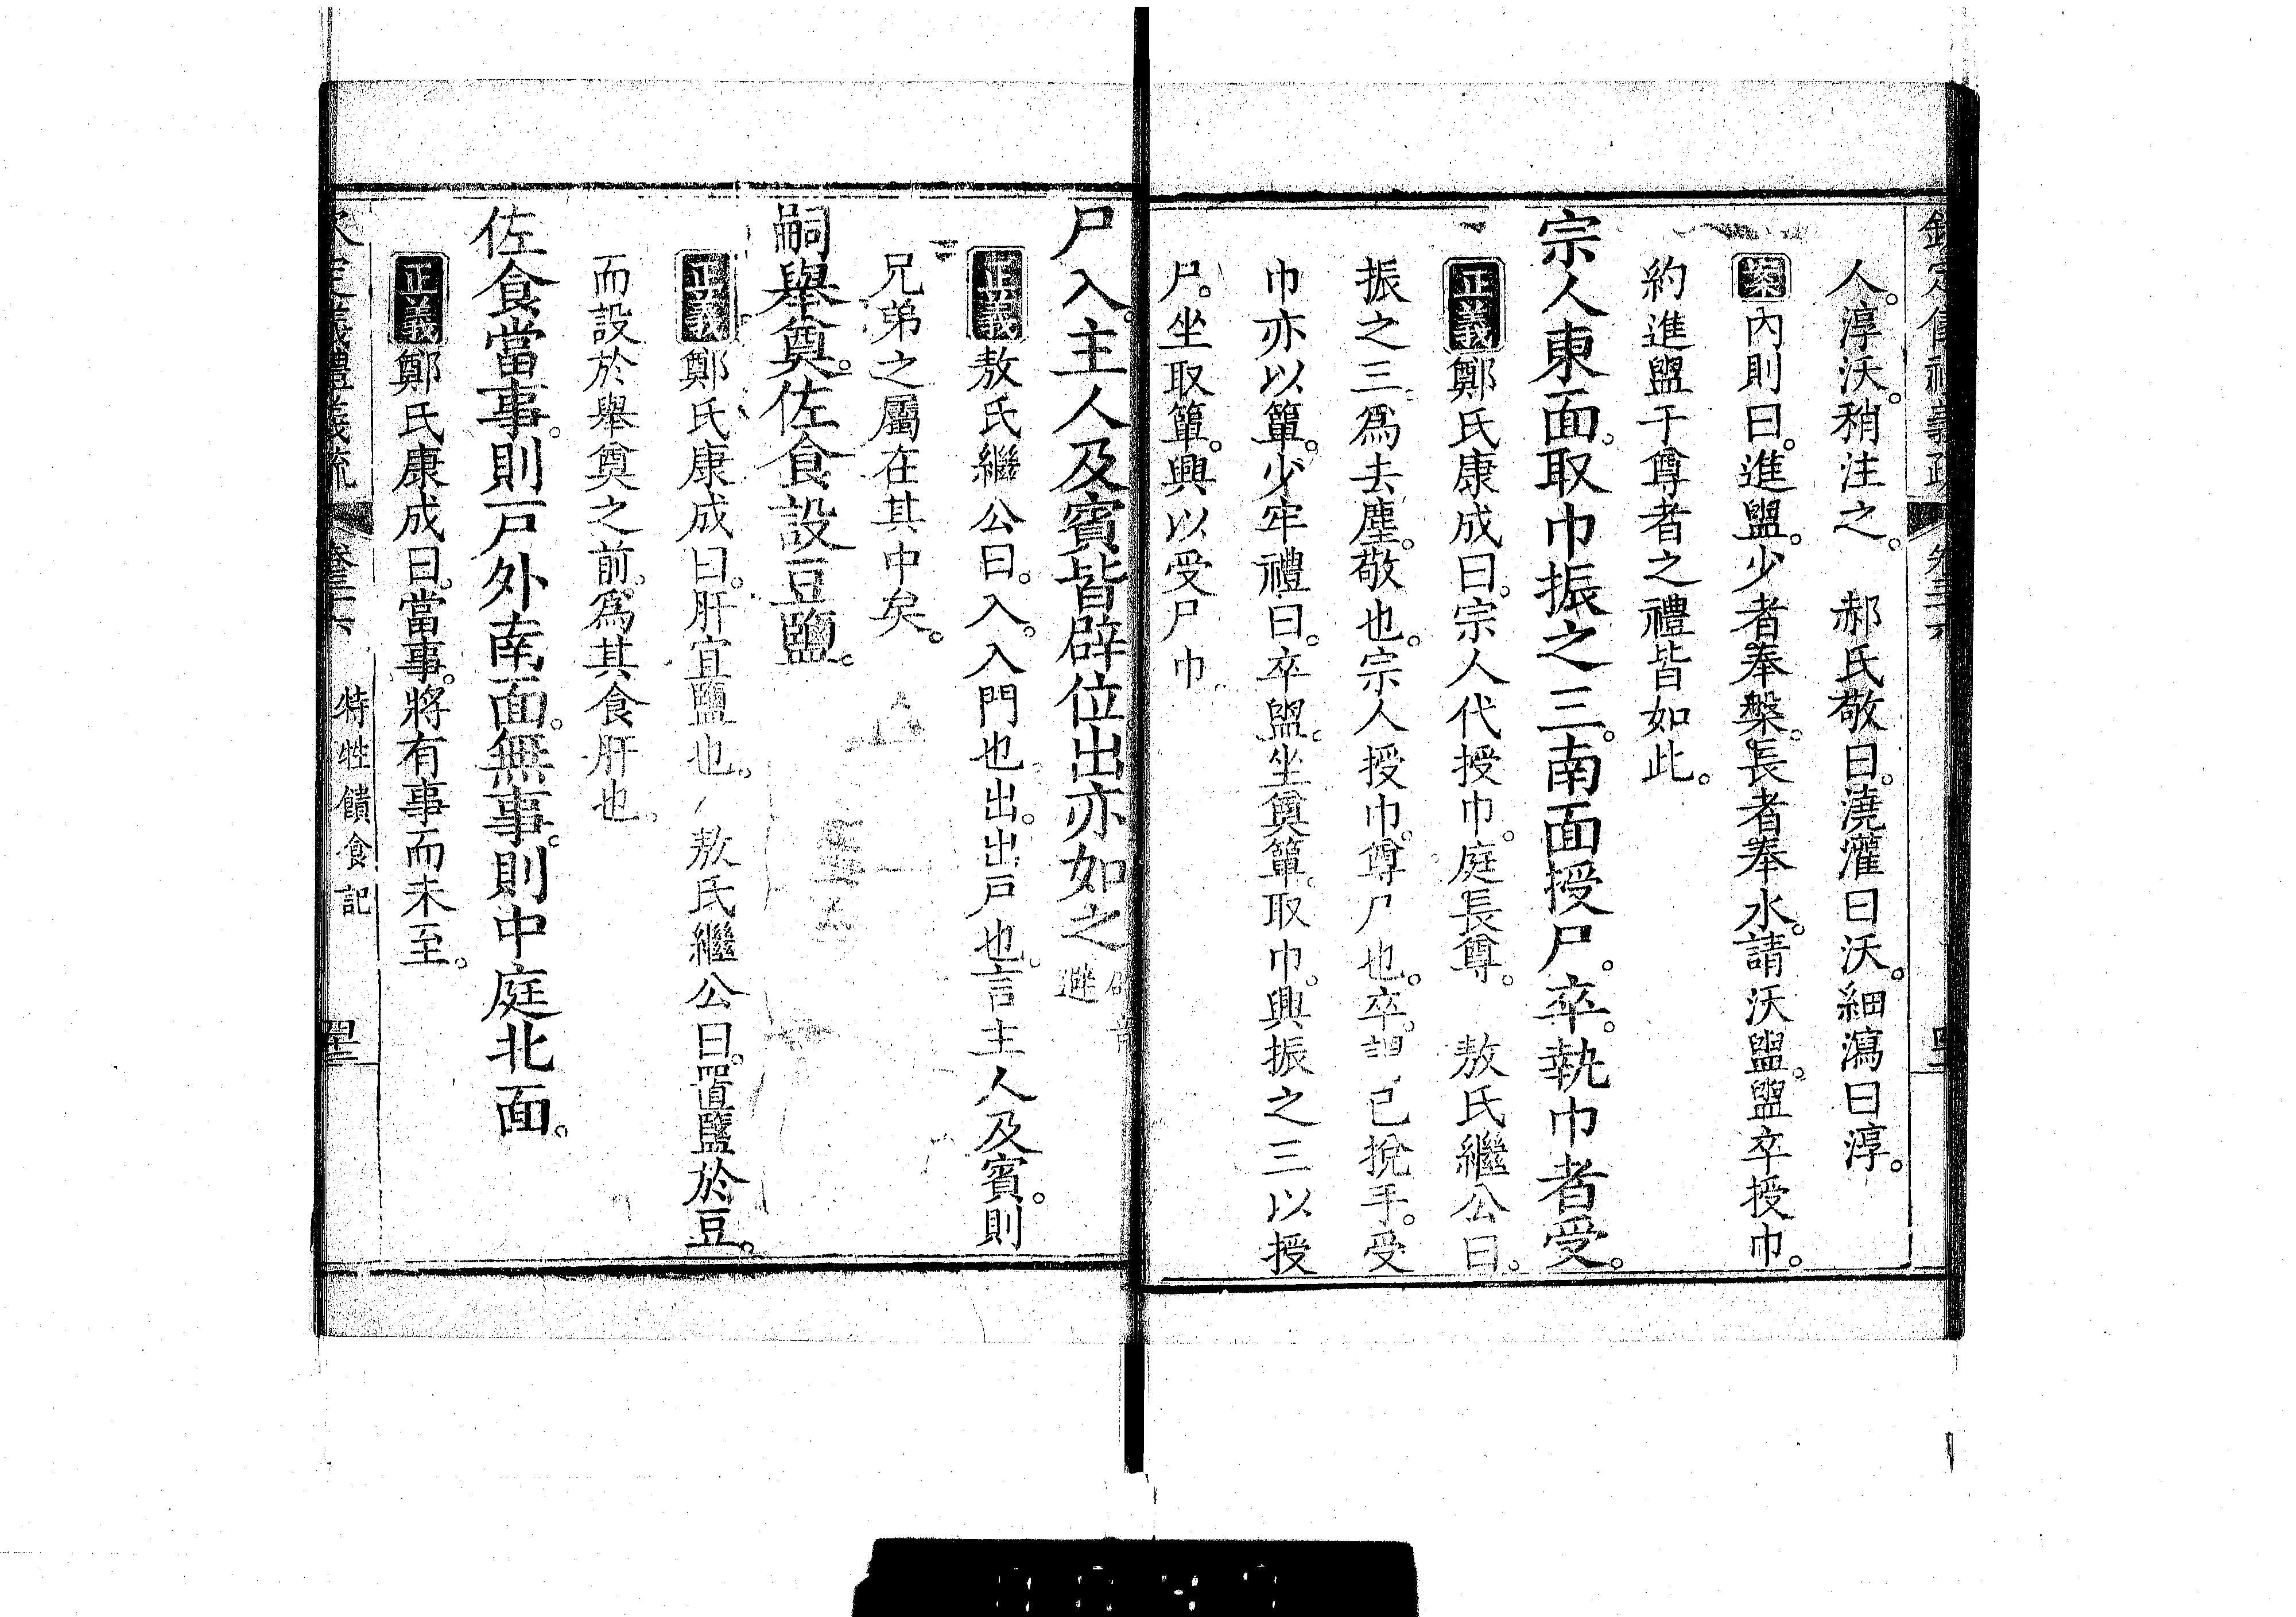 人。淳沃。稍注之。　郝氏敬曰。澆灌曰沃。細瀉曰淳。
案內則曰。進盥。少者奉槃。長者奉水。請沃盥。盥卒授巾。
約進盥于尊者之禮皆如此。
宗人東面。取巾振之三。南面授尸。卒。執巾者受。
正義鄭氏康成曰。宗人代授巾。庭長尊。　敖氏繼公曰。
振之三。爲去塵。敬也。宗人授巾。尊尸也。卒。謂已挩手。受
巾亦以簞。少牢禮曰。卒盥。坐奠簞。取巾。興振之三以授
尸。坐取簞。興以受尸巾
尸入。主人及賓皆辟位出亦如之 辟音避
正義敖氏繼公曰。入。入門也。出。出戶也。言主人及賓。則
兄弟之屬在其中矣。
嗣舉奠。佐食設豆鹽。
正義鄭氏康成曰。肝宜鹽也。　敖氏繼公曰。置鹽於豆。
而設於舉奠之前。爲其食肝也。
佐食當事。則戶外南面。無事。則中庭北面。
正義鄭氏康成曰。當事。將有事而未至。
特牲饋食記